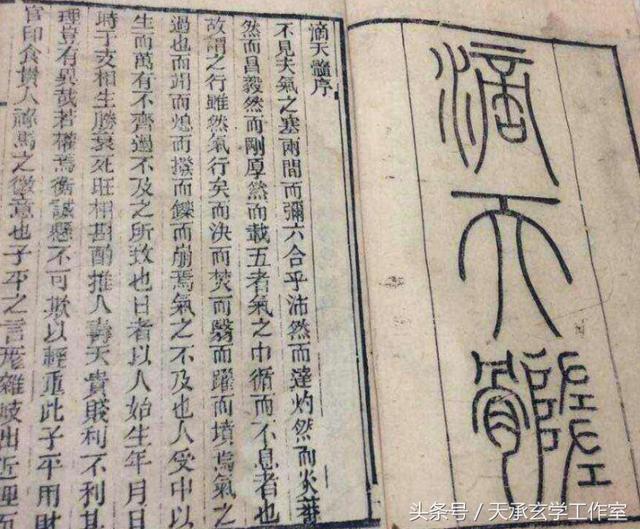 滴天髓
滴天髓序
不見夫氣之塞兩間而彌六合乎沛然而達灼然而炎蓊
然而昌毅然而剛厚然而載五者氣之中循而不息者也
故謂之行雖然氣行矣而決而焚而翳而躍而墳焉氣之
過也而涸而熄而撥而鑠而崩焉氣之不及也人受中以
生而萬有不齊過不及之所致也日者以人始生年月日
時干支相生勝衰死旺相斟酌推人壽夭貴賤利不利其
理豈有異哉若權焉衡誠懸不可欺以輕重此子平用財
官印食貴人祿馬之微意也子平之言厖雜歧出近理而
头条号/天承玄学工作室